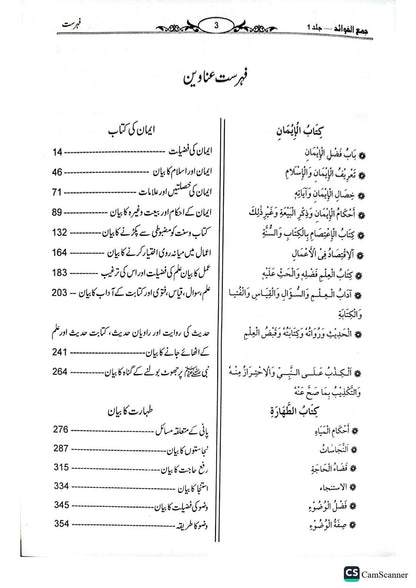 جمع الفوائد — جلد 1
3
فہرست
فہرست عناوین
كِتَابُ الْإِيْمَانِ
ایمان کی کتاب
بَابُ فَضْلِ الْإِيْمَانِ
ایمان کی فضیلت 14
تَعْرِيْفُ الْإِيْمَانِ وَالْإِسْلَامِ
ایمان اور اسلام کا بیان 46
خِصَالُ الْإِيْمَانِ وَآيَاتِهٖ
ایمان کی خصلتیں اور علامات 71
أَحْكَامُ الْإِيْمَانِ وَذِكْرُ الْبَيْعَةِ وَغَيْرِ ذٰلِكَ
ایمان کے احکام اور بیعت وغیرہ کا بیان 89
كِتَابُ الْإِعْتِصَامِ بِالْكِتَابِ وَالسُّنَّةِ
کتاب وسنت کو مضبوطی سے پکڑنے کا بیان 132
اَلْاِقْتِصَادُ فِي الْأَعْمَالِ
اعمال میں میانہ روی اختیار کرنے کا بیان 164
كِتَابُ الْعِلْمِ فَضْلِهٖ وَالْحَثِّ عَلَيْهِ
عمل کا بیان علم کی فضیلت اور اس کی ترغیب 183
آدَابُ الْعِلْمِ وَالسُّؤَالِ وَالْقِيَاسِ وَالْفُتْيَا
وَالْكِتَابَةِ
علم، سوال، قیاس، فتوی اور کتابت کے آداب کا بیان 203
اَلْحَدِيْثُ وَرُوَاتُهٗ وَكِتَابَتُهٗ وَقَبْضُ الْعِلْمِ
حدیث کی روایت اور راویان حدیث، کتابت حدیث اور علم
کے اٹھائے جانے کا بیان 241
اَلْكِذْبُ عَلَى النَّبِيِّ وَالْاِحْتِرَازُ مِنْهُ
وَالتَّكْذِيْبُ بِمَا صَحَّ عَنْهُ
نبی ﷺ پر جھوٹ بولنے کے گناہ کا بیان 264
كِتَابُ الطَّهَارَةِ
طہارت کا بیان
أَحْكَامُ الْمِيَاهِ
پانی کے متعلقہ مسائل 276
اَلنَّجَاسَاتُ
نجاستوں کا بیان 287
قَضَاءُ الْحَاجَةِ
رفع حاجت کا بیان 315
الاستنجاء
استنجا کا بیان 334
فَضْلُ الْوُضُوْءِ
وضو کی فضیلت کا بیان 345
صِفَةُ الْوُضُوْءِ
وضو کا طریقہ 354
CS CamScanner